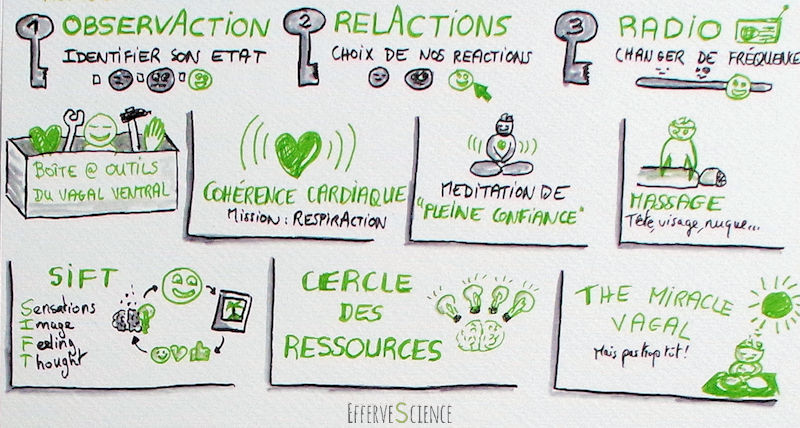 1 OBSERVACTION
IDENTIFIER SON ETAT
2 RELACTIONS
CHOIX DE NOS REACTIONS
3 RADIO
CHANGER DE FRÉQUENCE
BOÎTE @ OUTILS
DU VAGAL VENTRAL
COHÉRENCE CARDIAQUE
Mission : RESPIRACTION
MEDITATION DE
"PLEINE CONFIANCE"
MASSAGE
Tête, visage, nuque...
SIFT
Sensations
Image
Feeling
Thought
CERCLE
DES
RESSOURCES
THE MIRACLE
VAGAL
Mais pas trop tôt !
EFFERVESCIENCE